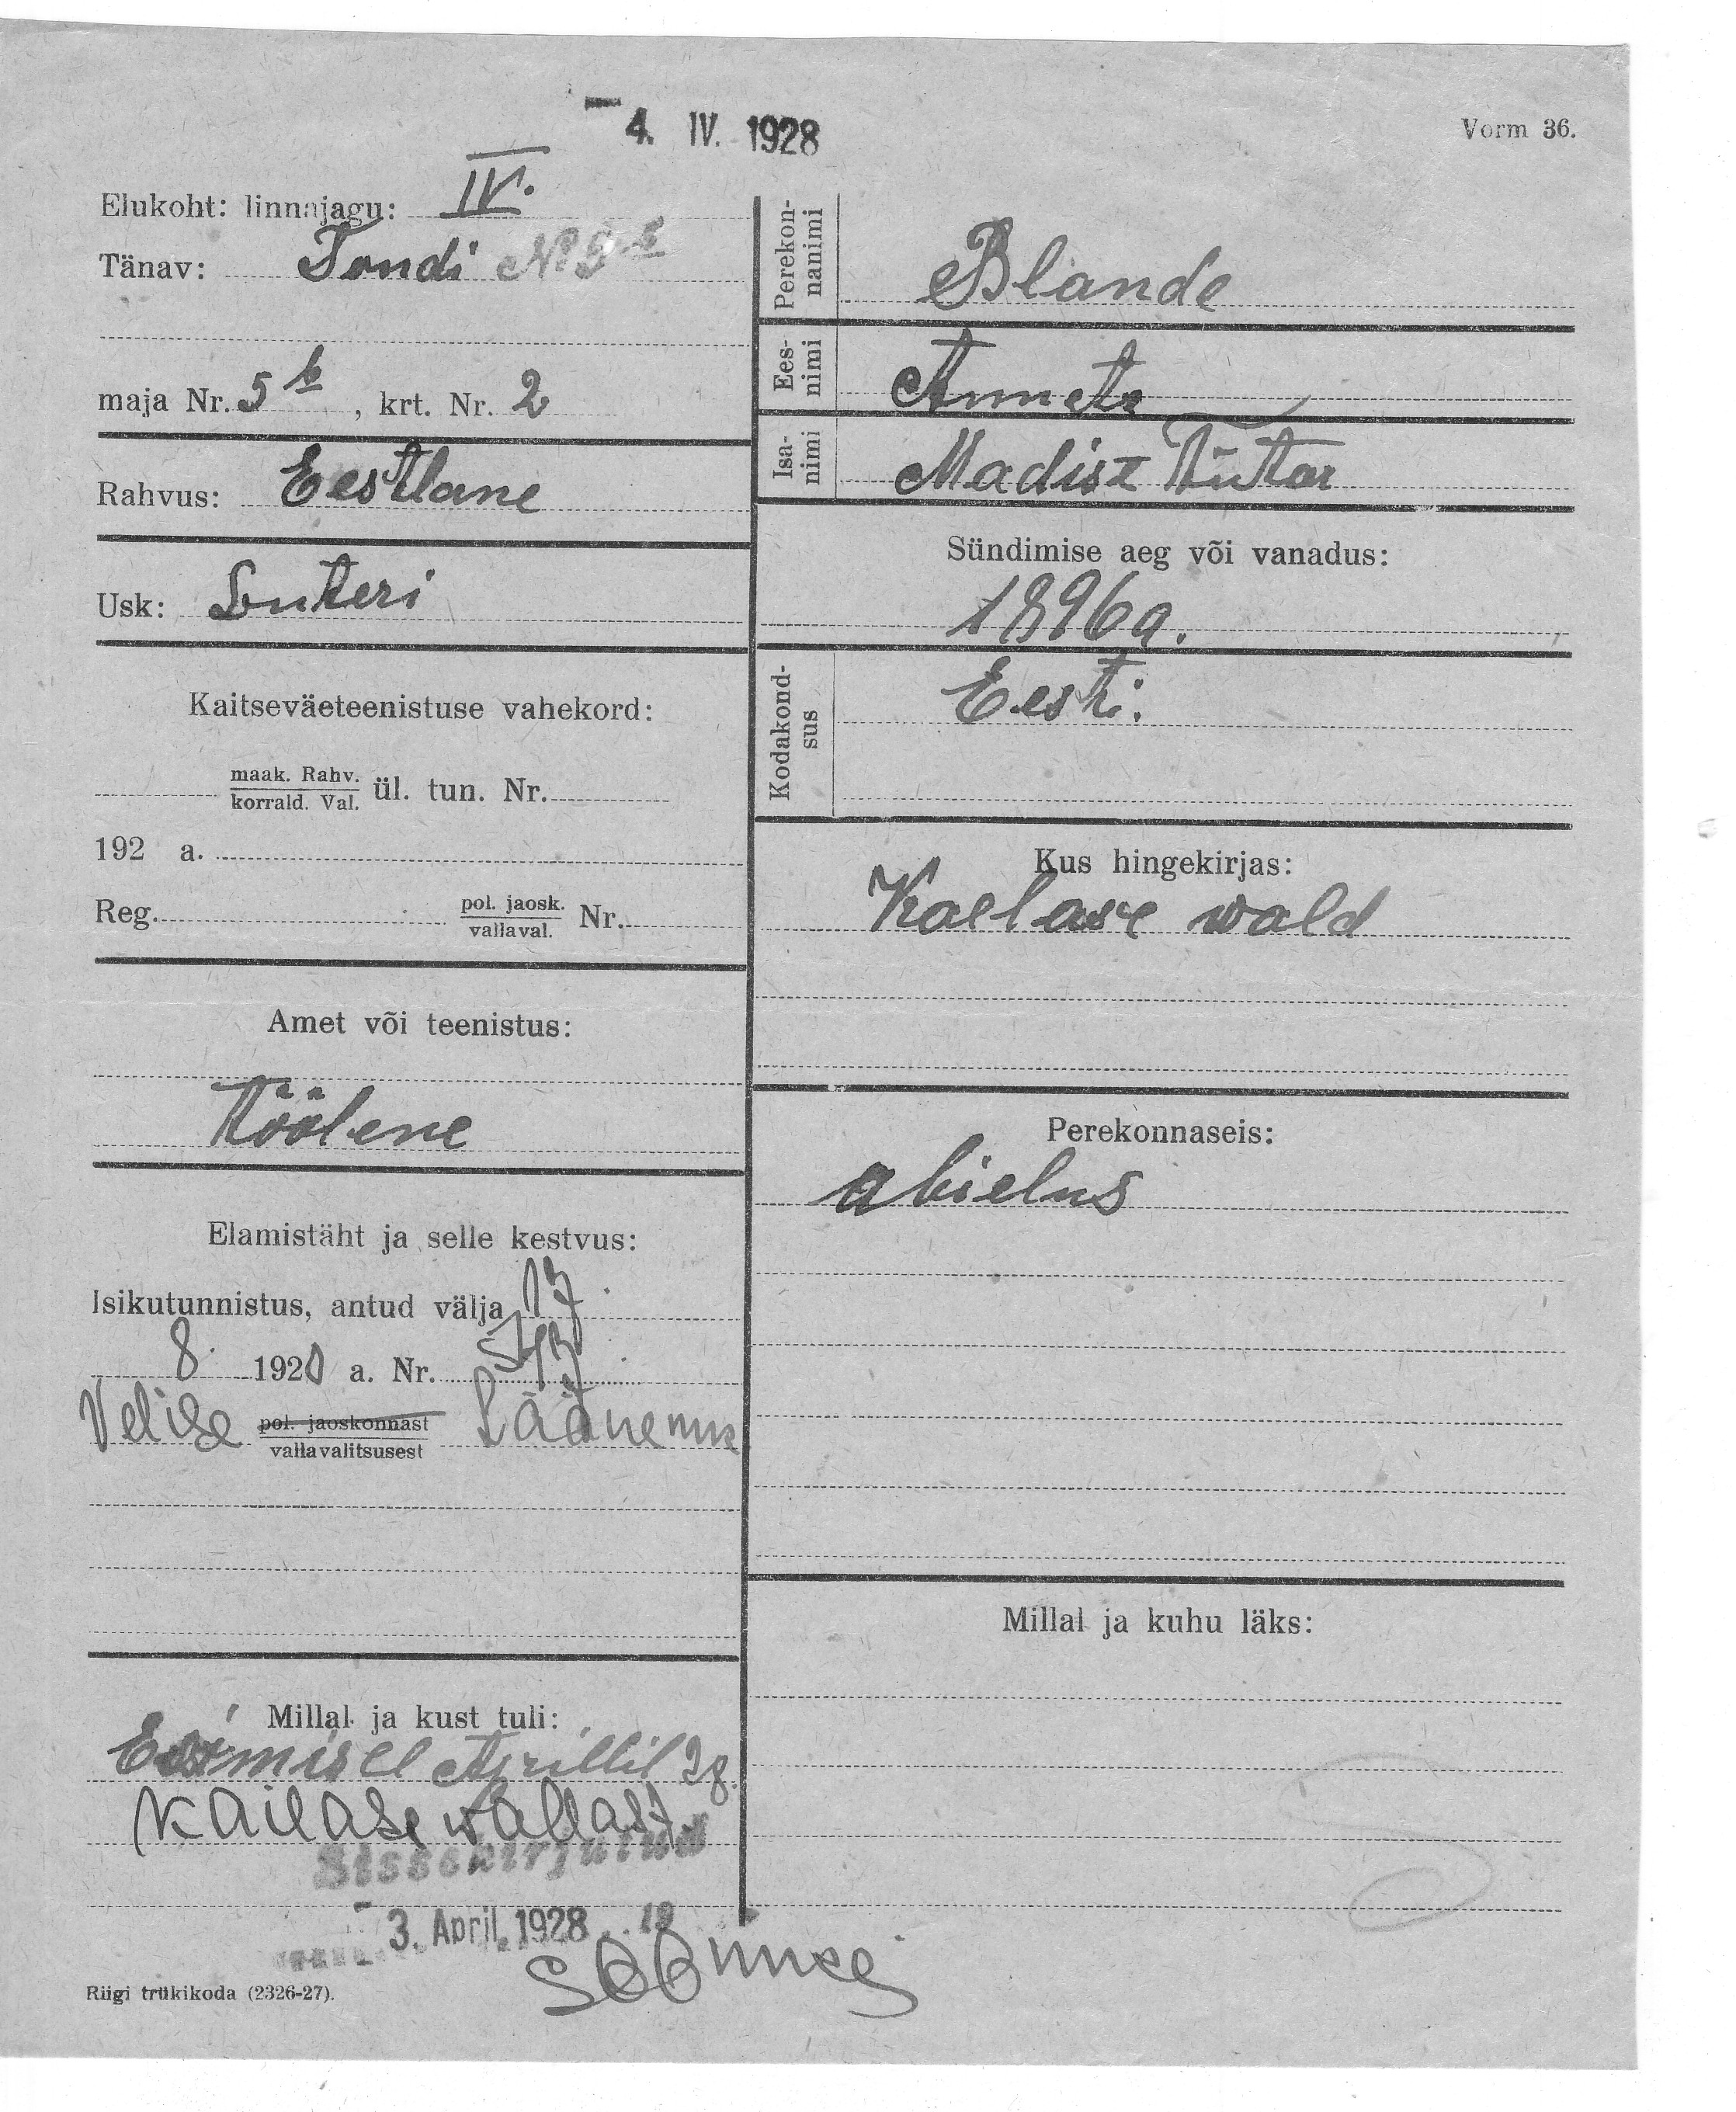 4. IV. 1928
Vorm 36.
Elukoht: linnajagu: IV.
Tänav: Tondi
maja Nr. 5b, krt. Nr. 2
Rahvus: Eestlane
Usk: Luteri
Kaitseväeteenistuse vahekord:
maak. Rahv.
korrald. Val. ül. tun. Nr.
192 a.
Reg. pol. jaosk.
vallaval. Nr.
Amet või teenistus:
Töölene
Elamistäht ja selle kestvus:
Isikutunnistus, antud välja 17.
8. 1920 a. Nr.
Velise pol. jaoskonnast
vallavalitsusest Läänemaa
Millal ja kust tuli:
Esimisel Aprillil 28.
Kailase wallast
Sissekirjutud
3. April. 1928 19
Riigi trükikoda (2326-27).
Perekon-
nanimi Blande
Ees-
nimi Anneta
Isa-
nimi Madise Tütar
Sündimise aeg või vanadus:
1896 a.
Kodakond-
sus Eesti.
Kus hingekirjas:
Kaelase wald
Perekonnaseis:
abielus
Millal ja kuhu läks: